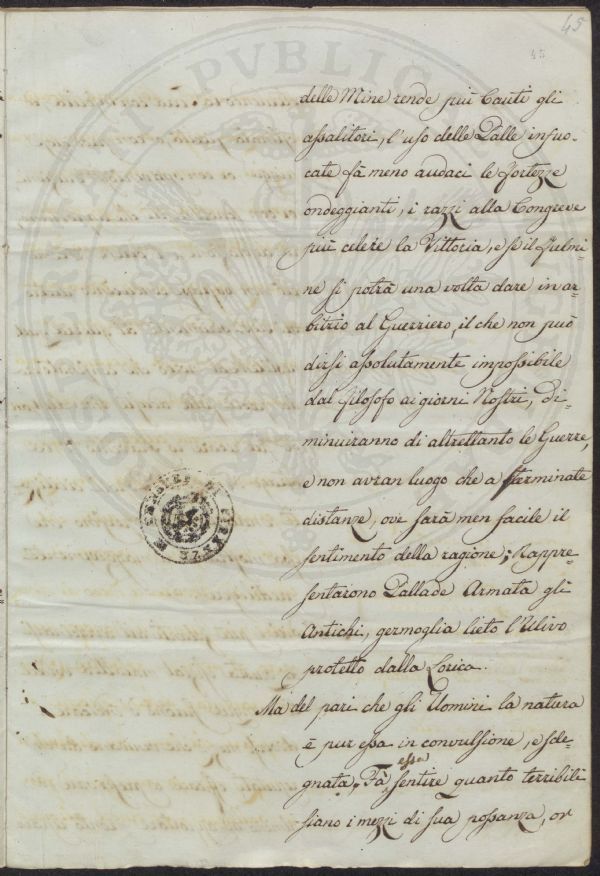 45
45
delle Mine rende più Cauti gli
assalitori, l'uso delle Palle infuo-
cate fà meno audaci le Fortezze
ondeggianti, i razzi alla Congreve
più celere la Vittoria, e se il fulmi-
ne si potrà una volta dare in ar-
bitrio al Guerriero, il che non può
dirsi assolutamente impossibile
dal filosofo ai giorni Nostri, di-
minuiranno di altrettanto le Guerre,
e non avran luogo che a sterminate
distanze, ove sarà men facile il
sentimento della ragione; Rappre-
sentarono Pallade Armata gli
Antichi, germoglia lieto l'Ulivo
protetto dalla Lorica.
Ma del pari che gli Uomini la natura
è pur essa in convulsione, e sde-
essa
gnata, Fà sentire quanto terribili
siano i mezzi di sua possanza, or